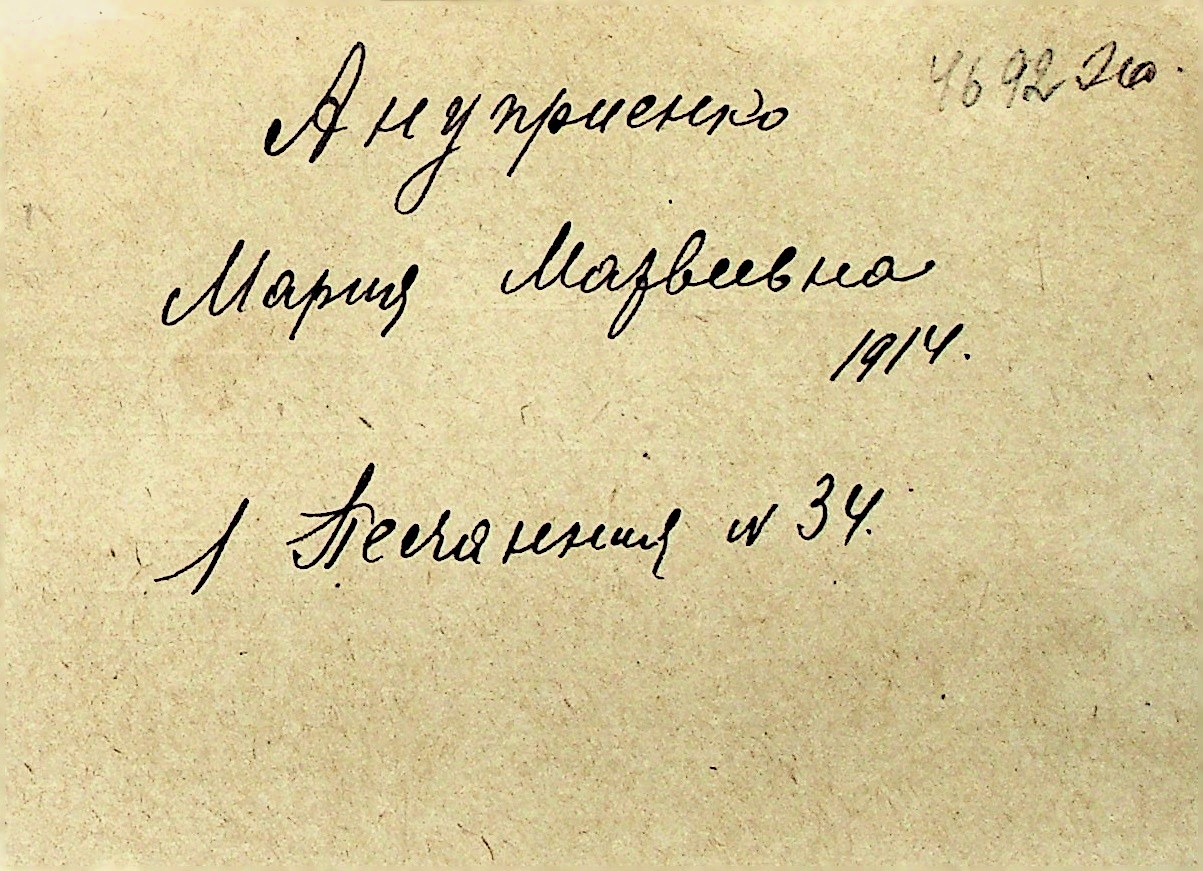 4692
Ануприенко
Мария Матвеевна
1914.
1 Песчанная N 34.